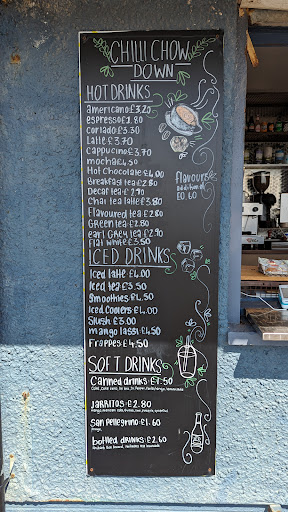 CHILLI CHOW
DOWN
HOT DRINKS
americano £3.20
espresso £1.80
cortado £3.30
Latte £3.70
Cappuccino £3.70
mocha £4.50
Hot chocolate £4.00
Breakfast tea £2.80
Decaf tea £2.90
Chai tea latte £3.80
Flavoured tea £2.80
Green tea £2.80
earl Grey tea £2.90
Flat white £3.50
Flavours
addition of
£0.60
ICED DRINKS
Iced latte £4.00
Iced tea £3.50
Smoothies £4.50
Iced Coolers £4.00
Slush £3.00
mango lassi £4.50
Frappes £4.50
SOFT DRINKS
Canned drinks £1.50
JARRITOS £2.80
San Pellegrino £1.60
bottled drinks £2.60